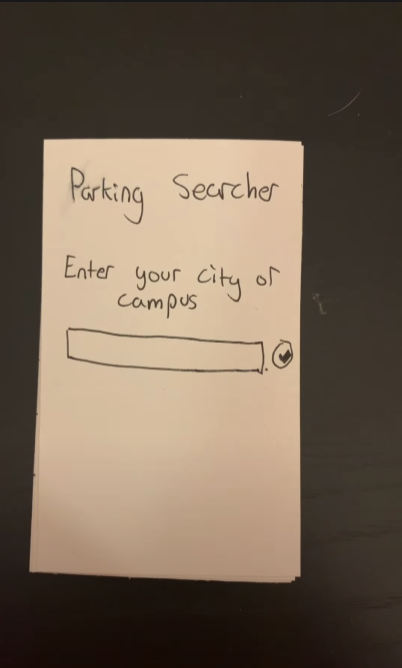 Parking Searcher
Enter your city or
campus